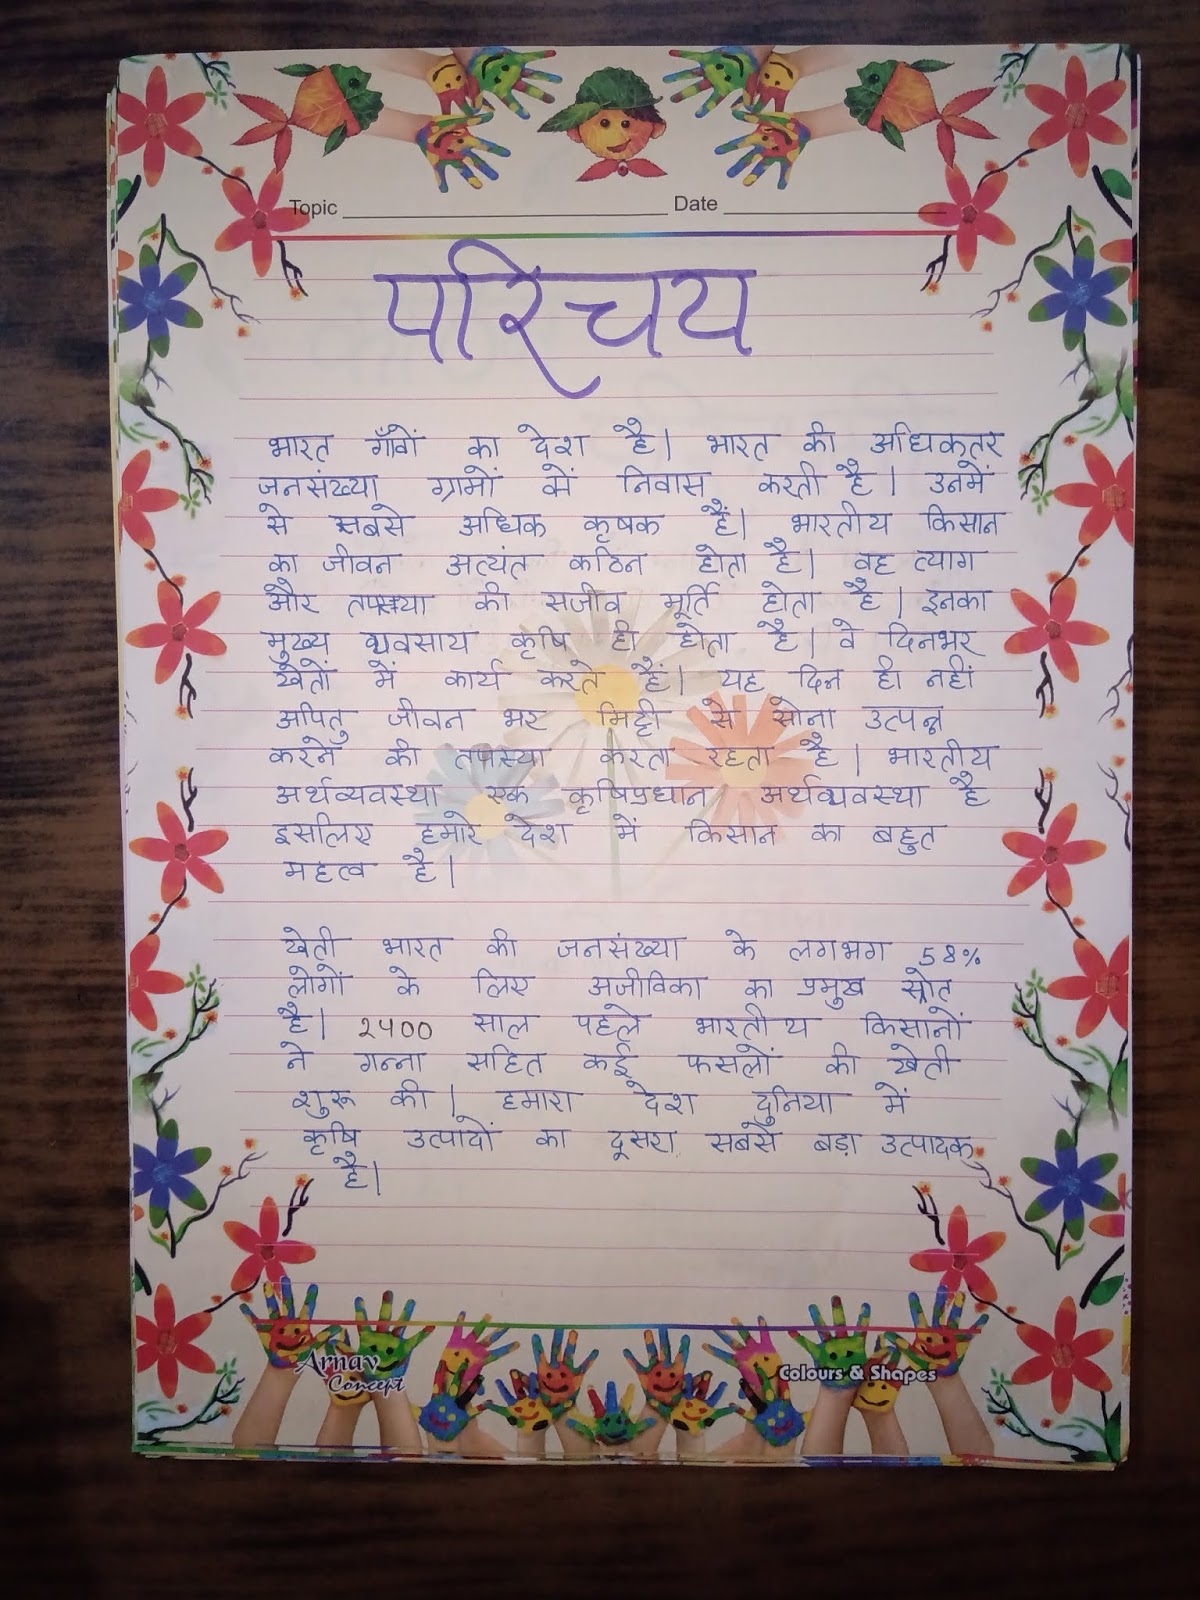 Topic Date
परिचय
भारत गाँवों का देश है। भारत की अधिकतर
जनसंख्या ग्रामों में निवास करती है। उनमें
से सबसे अधिक कृषक हैं। भारतीय किसान
का जीवन अत्यंत कठिन होता है। वह त्याग
और तपस्या की सजीव मूर्ति होता है। इनका
मुख्य व्यवसाय कृषि ही होता है। वे दिनभर
खेतों में कार्य करते हैं। यह दिन ही नहीं
अपितु जीवन भर मिट्टी से सोना उत्पन्न
करने की तपस्या करता रहता है। भारतीय
अर्थव्यवस्था एक कृषिप्रधान अर्थव्यवस्था है
इसलिए हमारे देश में किसान का बहुत
महत्व है।
खेती भारत की जनसंख्या के लगभग 58%
लोगों के लिए अजीविका का प्रमुख स्रोत
है। २५00 साल पहले भारतीय किसानों
ने गन्ना सहित कई फसलों की खेती
शुरू की। हमारा देश दुनिया में
कृषि उत्पादों का दूसरा सबसे बड़ा उत्पादक
है।
Arnav
Concept
Colours & Shapes